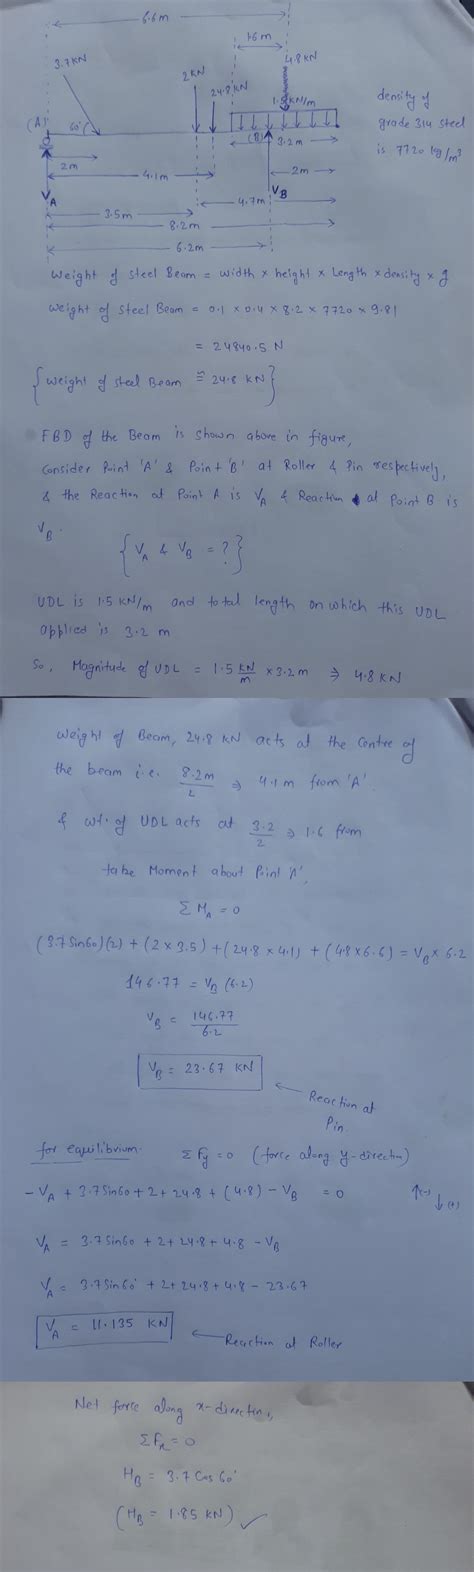 6.6m
1.6m
3.7KN
2KN
24.8KN
4.8KN
1.5KN/m
density of
grade 314 steel
is 7720 kg/m³
(A)
60°
(B)
3.2m
2m
4.1m
2m
V_A
V_B
3.5m
4.7m
8.2m
6.2m
Weight of steel Beam = width × height × Length × density × g
Weight of Steel Beam = 0.1 × 0.4 × 8.2 × 7720 × 9.81
= 24840.5 N
{Weight of steel Beam ≅ 24.8 KN}
FBD of the Beam is shown above in figure,
Consider Point 'A' & Point 'B' at Roller & Pin respectively,
& the Reaction at Point A is V_A & Reaction at Point B is
V_B.
{V_A & V_B = ?}
UDL is 1.5 KN/m and total length on which this UDL
applied is 3.2 m
So, Magnitude of UDL = 1.5 KN/m × 3.2 m ⇒ 4.8 KN
Weight of Beam, 24.8 KN acts at the Centre of
the beam i.e. 8.2m/2 ⇒ 4.1 m from 'A'.
& wt. of UDL acts at 3.2/2 ⇒ 1.6 from
take Moment about Point 'A',
Σ M_A = 0
(3.7 Sin60)(2) + (2 × 3.5) + (24.8 × 4.1) + (4.8 × 6.6) = V_B × 6.2
146.77 = V_B (6.2)
V_B = 146.77/6.2
V_B = 23.67 KN
Reaction at
Pin.
for equilibrium.
Σ Fy = 0 (force along y-direction)
- V_A + 3.7 Sin60 + 2 + 24.8 + (4.8) - V_B = 0
↑(-) ↓(+)
V_A = 3.7 Sin60 + 2 + 24.8 + 4.8 - V_B
V_A = 3.7 Sin60° + 2 + 24.8 + 4.8 - 23.67
V_A = 11.135 KN
Reaction at Roller
Net force along x-direction,
Σ Fx = 0
H_B = 3.7 Cos 60°
(H_B = 1.85 KN) ✓